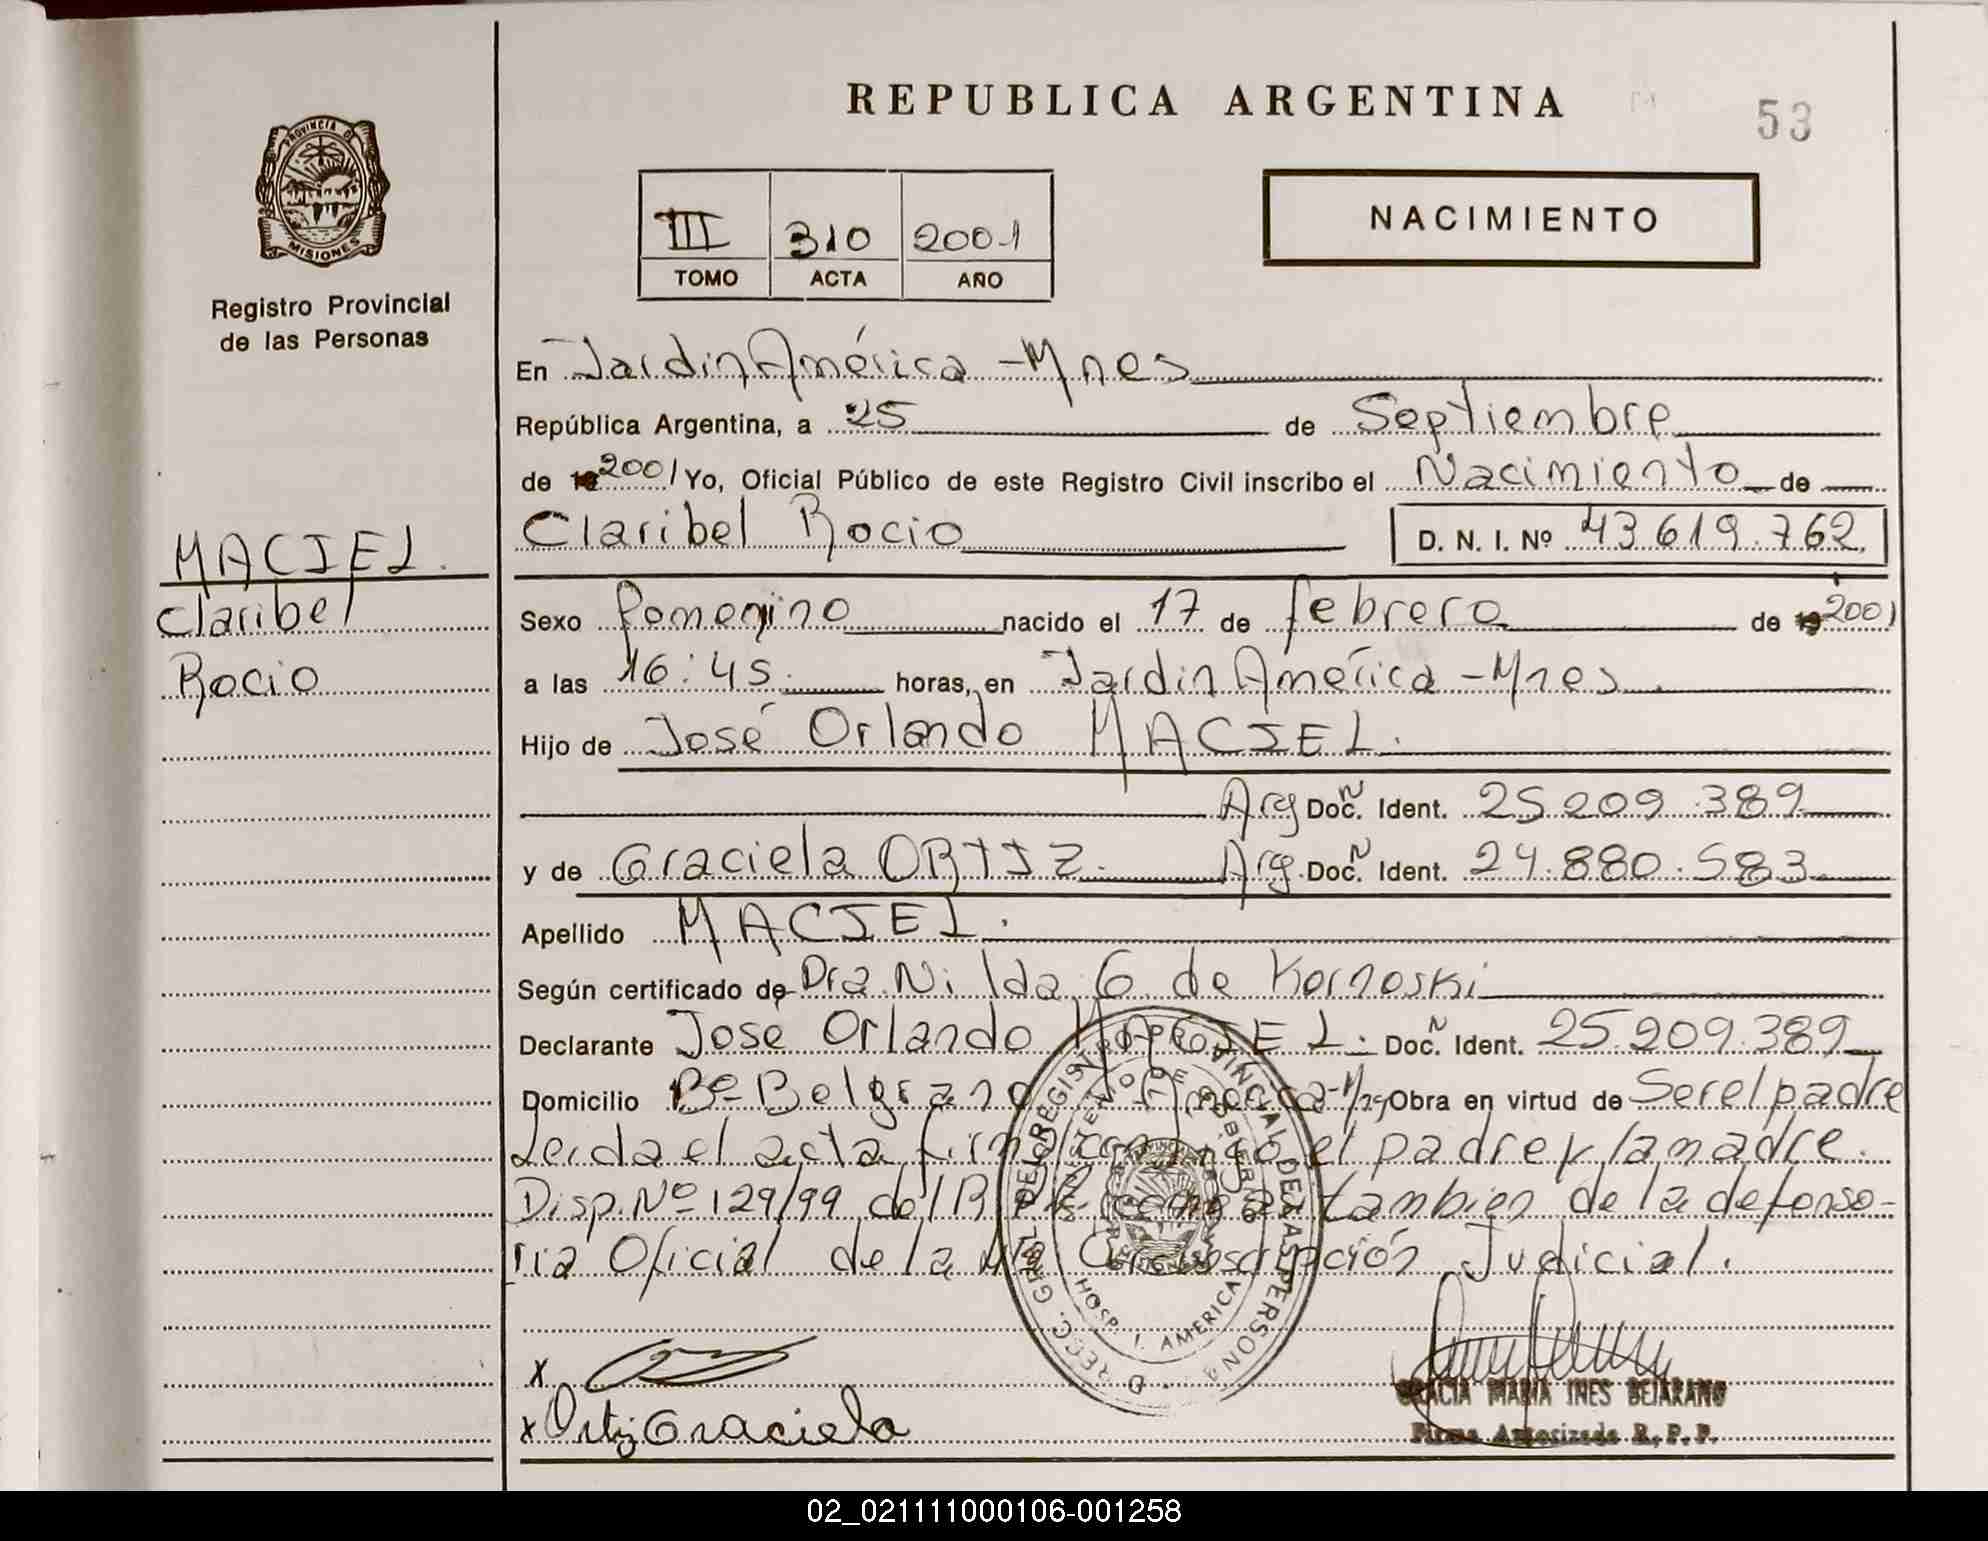 REPUBLICA ARGENTINA
53
PROVINCIA DE
MISIONES
Registro Provincial
de las Personas
III 310 2001
TOMO ACTA AÑO
NACIMIENTO
En Jardin América - Mnes
República Argentina, a 25 de Septiembre
de 2001 Yo, Oficial Público de este Registro Civil inscribo el Nacimiento de
Claribel Rocio D. N. I. Nº 43.619.762
MACIEL.
Claribel
Rocio
Sexo femenino nacido el 17 de febrero de 2001
a las 16:45 horas, en Jardin América - Mnes
Hijo de José Orlando MACIEL.
Arg Doc. N Ident. 25.209.389
y de Graciela ORTIZ. Arg. Doc. N Ident. 24.880.583
Apellido MACIEL.
Según certificado de Dra. Nilda G de Kornoski
Declarante José Orlando MACIEL. Doc. N Ident. 25.209.389
Domicilio Bº Belgrano J. América - Mnes Obra en virtud de Ser el padre
Leida el acta, firman conmigo el padre y la madre.
Disp. Nº 129/99 del R.P.P. como así tambien de la defenso-
ria Oficial de la Circunscripción Judicial.
DEL REGISTRO PROVINCIAL DE LAS PERSONAS
MINISTERIO DE GOBIERNO
HOSP. J. AMERICA
x
x Ortiz Graciela
GRACIA MARIA INES BEJARANO
Firma Autorizada R. P. P.
02_021111000106-001258